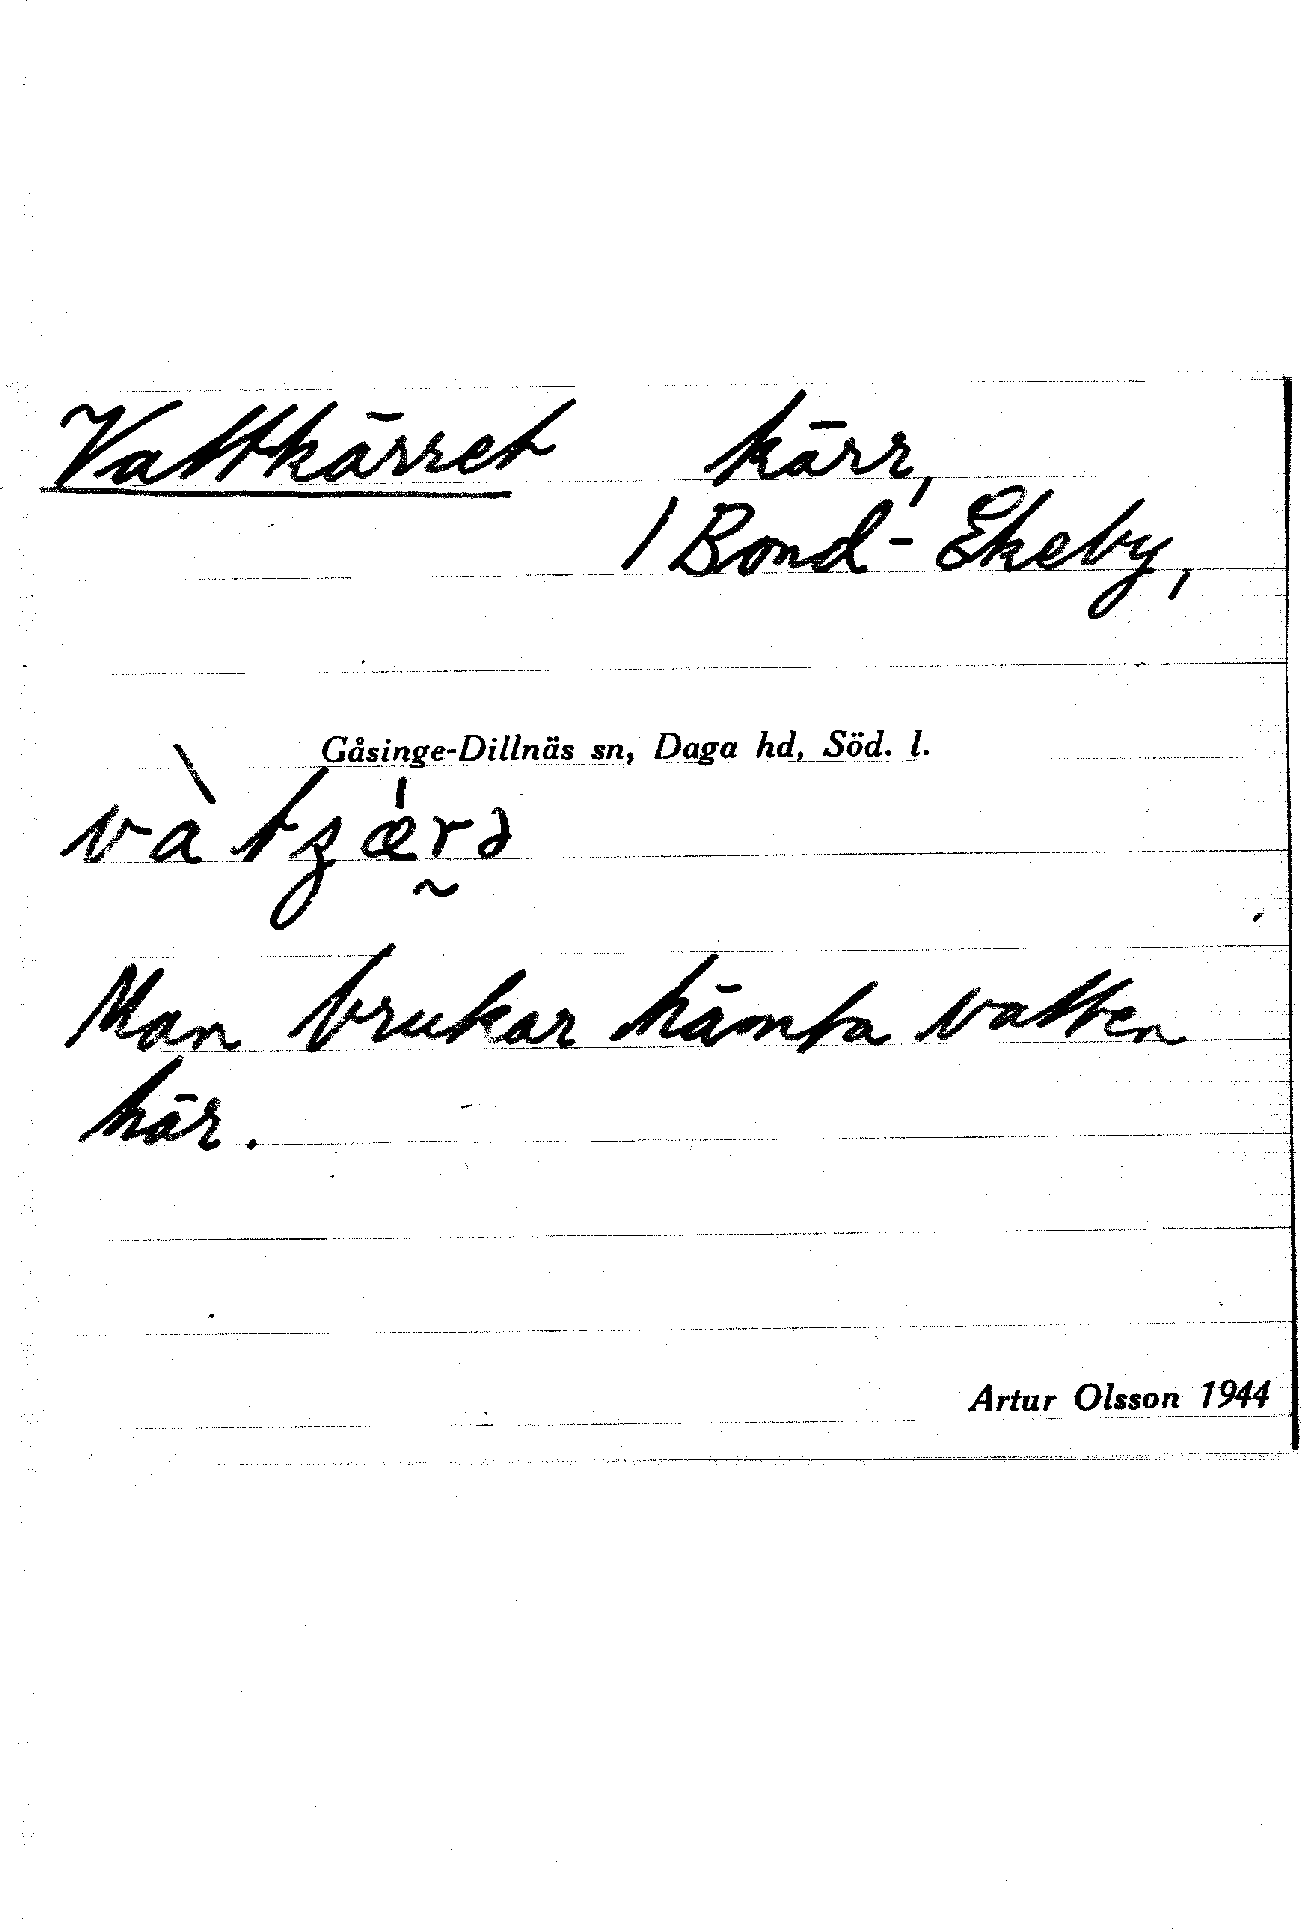 Vattkärret kärr,
/ Bond-Ekeby,
Gåsinge-Dillnäs sn, Daga hd, Söd. l.
Man brukar hämta vatten
här.
Artur Olsson 1944